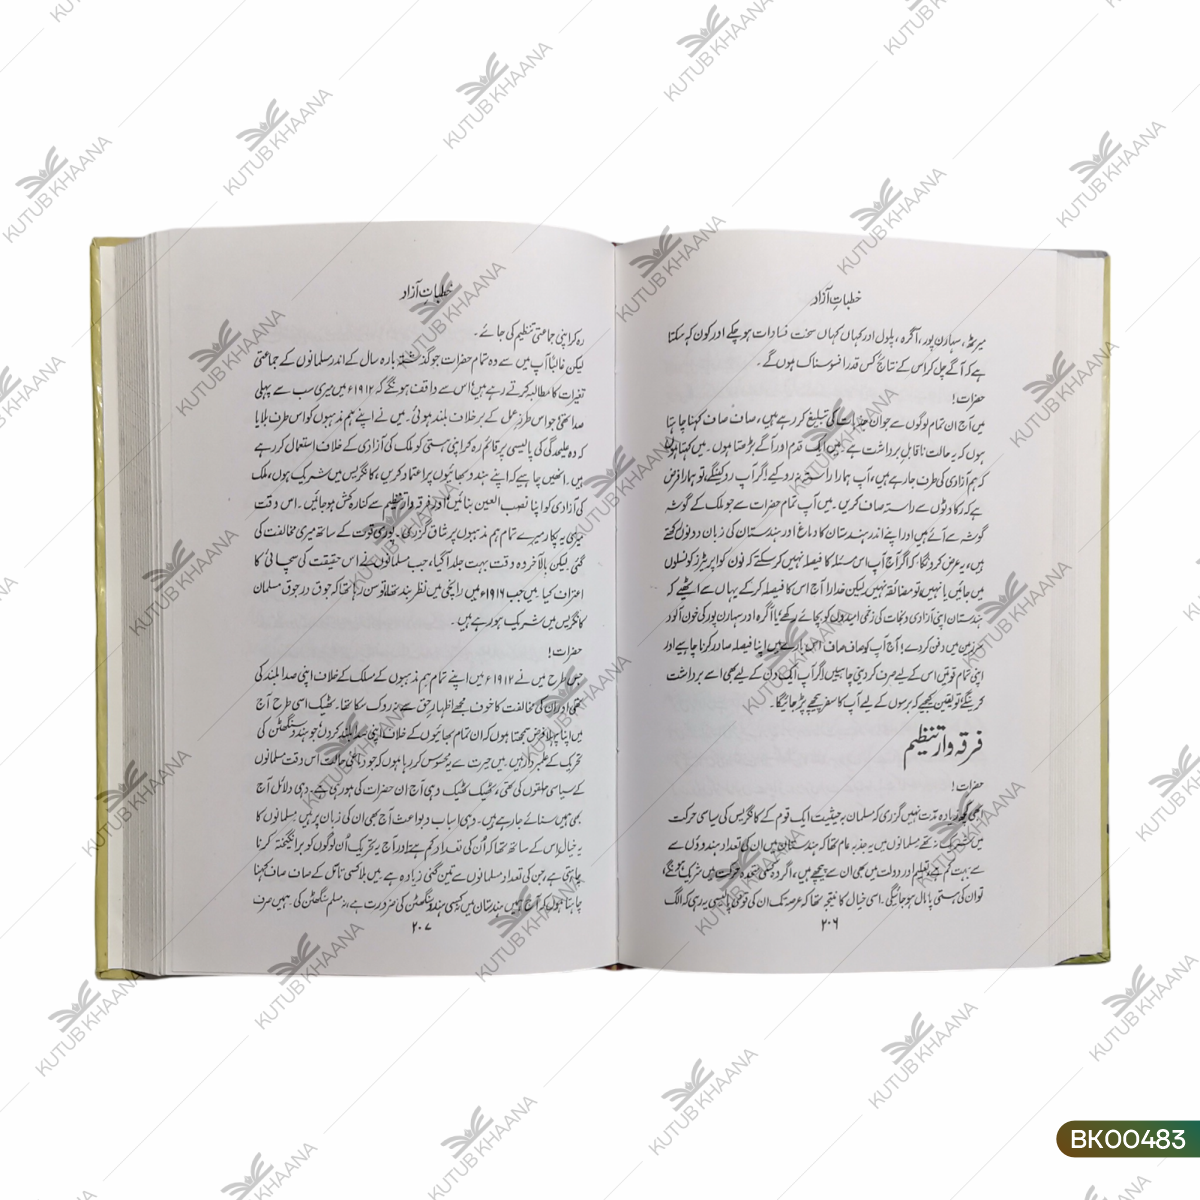 خطباتِ آزاد
میرٹھ، سہارن پور، آگرہ، پلول اور کہاں کہاں سخت فسادات ہو چکے اور کون کہہ سکتا
ہے کہ آگے چل کر اس کے نتائج کس قدر افسوسناک ہوں گے۔
حضرات!
میں آج ان تمام لوگوں سے جو ان جذبات کی تبلیغ کر رہے ہیں، صاف صاف کہنا چاہتا
ہوں کہ یہ حالت ناقابلِ برداشت ہے۔ میں ایک قدم اور آگے بڑھتا ہوں۔ میں کہتا ہوں
کہ ہم آزادی کی طرف جا رہے ہیں، آپ ہمارا راستہ نہ روکیے! اگر آپ روکینگے، تو ہمارا فرض
ہے کہ رکاوٹوں سے راستہ صاف کریں۔ میں آپ تمام حضرات سے جو ملک کے گوشہ
گوشہ سے آئے ہیں اور اپنے اندر ہندستان کا دماغ اور ہندستان کی زبان دونوں رکھتے
ہیں، یہ عرض کرونگا، کہ اگر آپ اس مسئلہ کا فیصلہ نہیں کر سکتے کہ نون کواپریٹرز کونسلوں
میں جائیں یا نہیں، تو مضائقہ نہیں لیکن خدارا آج اس کا فیصلہ کر کے یہاں سے اٹھیے کہ
ہندستان اپنی آزادی و نجات کی زخمی امیدوں کو بچائے رکھے یا آگرہ اور سہارن پور کی خون آلود
سرزمین میں دفن کر دے! آج آپ کو صاف صاف اس بارے میں اپنا فیصلہ صادر کرنا چاہیے اور
اپنی تمام قوتیں اس کے لیے صرف کر دینی چاہییں! اگر آپ ایک دن کے لیے بھی اسے برداشت
کرینگے تو یقین کیجیے کہ برسوں کے لیے آپ کا سفر پیچھے پڑ جائیگا۔
فرقہ وار تنظیم
حضرات!
ابھی کچھ زیادہ مدت نہیں گزری کہ مسلمان بہ حیثیت ایک قوم کے کانگریس کی سیاسی حرکت
میں شریک نہ تھے۔ مسلمانوں میں یہ جذبہ عام تھا کہ ہندستان میں ان کی تعداد ہندوؤں سے
بہت کم ہے تعلیم اور دولت میں بھی ان سے پیچھے ہیں، اگر وہ کسی متحدہ حرکت میں شریک ہونگے،
تو ان کی ہستی پامال ہو جائیگی۔ اسی خیال کا نتیجہ تھا کہ عرصہ تک ان کی قومی پالیسی یہ رہی کہ الگ
۲۰۶
خطباتِ آزاد
رہ کر اپنی جماعتی تنظیم کی جائے۔
لیکن غالباً آپ میں سے وہ تمام حضرات جو گذشتہ بارہ سال کے اندر مسلمانوں کے جماعتی
تغیرات کا مطالعہ کرتے رہے ہیں! اس سے واقف ہونگے کہ ۱۹۱۲ء میں میری سب سے پہلی
صدا تھی جو اس طرزِ عمل کے برخلاف بلند ہوئی۔ میں نے اپنے ہم مذہبوں کو اس طرف بلایا
کہ وہ علیحدگی کی پالیسی پر قائم رہ کر اپنی ہستی کو ملک کی آزادی کے خلاف استعمال کر رہے
ہیں۔ انھیں چاہیے کہ اپنے ہندو بھائیوں پر اعتماد کریں، کانگریس میں شریک ہوں، ملک
کی آزادی کو اپنا نصب العین بنائیں اور فرقہ وار تنظیم سے کنارہ کش ہو جائیں۔ اس وقت
میری یہ پکار میرے تمام ہم مذہبوں پر شاق گزری۔ پوری قوت کے ساتھ میری مخالفت کی
گئی لیکن بالآخر وہ وقت بہت جلد آ گیا، جب مسلمانوں نے اس حقیقت کی سچائی کا
اعتراف کیا۔ میں جب ۱۹۱۶ء میں رانچی میں نظر بند تھا تو سن رہا تھا کہ جوق در جوق مسلمان
کانگریس میں شریک ہو رہے ہیں۔
حضرات!
جس طرح میں نے ۱۹۱۲ء میں اپنے تمام ہم مذہبوں کے مسلک کے خلاف اپنی صدا بلند کی
تھی اور ان کی مخالفت کا خوف مجھے اظہارِ حق سے نہ روک سکا تھا۔ ٹھیک اسی طرح آج
میں اپنا پہلا فرض سمجھتا ہوں کہ ان تمام بھائیوں کے خلاف اپنی صدا بلند کروں جو ہندو سنگھٹن کی
تحریک کے علمبردار ہیں۔ میں حیرت سے یہ محسوس کر رہا ہوں کہ جو دماغی حالت اس وقت مسلمانوں
کے سیاسی حلقوں کی تھی، ٹھیک ٹھیک وہی آج ان حضرات کی ہو رہی ہے۔ وہی دلائل آج
بھی ہمیں سنائے جا رہے ہیں۔ وہی اسباب و بواعث آج بھی ان کی زبان پر ہیں۔ مسلمانوں کا
یہ خیال اس کے ساتھ تھا کہ اُن کی تعداد کم ہے اور آج یہ تحریک اُن لوگوں کو برانگیختہ کرنا
چاہتی ہے، جن کی تعداد مسلمانوں سے تین گنی زیادہ ہے۔ میں بلا کسی تامل کے صاف صاف کہنا
چاہتا ہوں کہ آج ہمیں ہندستان میں کسی ہندو سنگھٹن کی ضرورت ہے، نہ مسلم سنگھٹن کی۔ ہمیں صرف
۲۰۷
BK00483